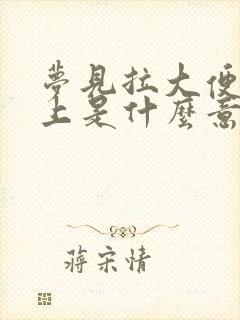 夢見拉大便
上是什麼意
蔣宋情